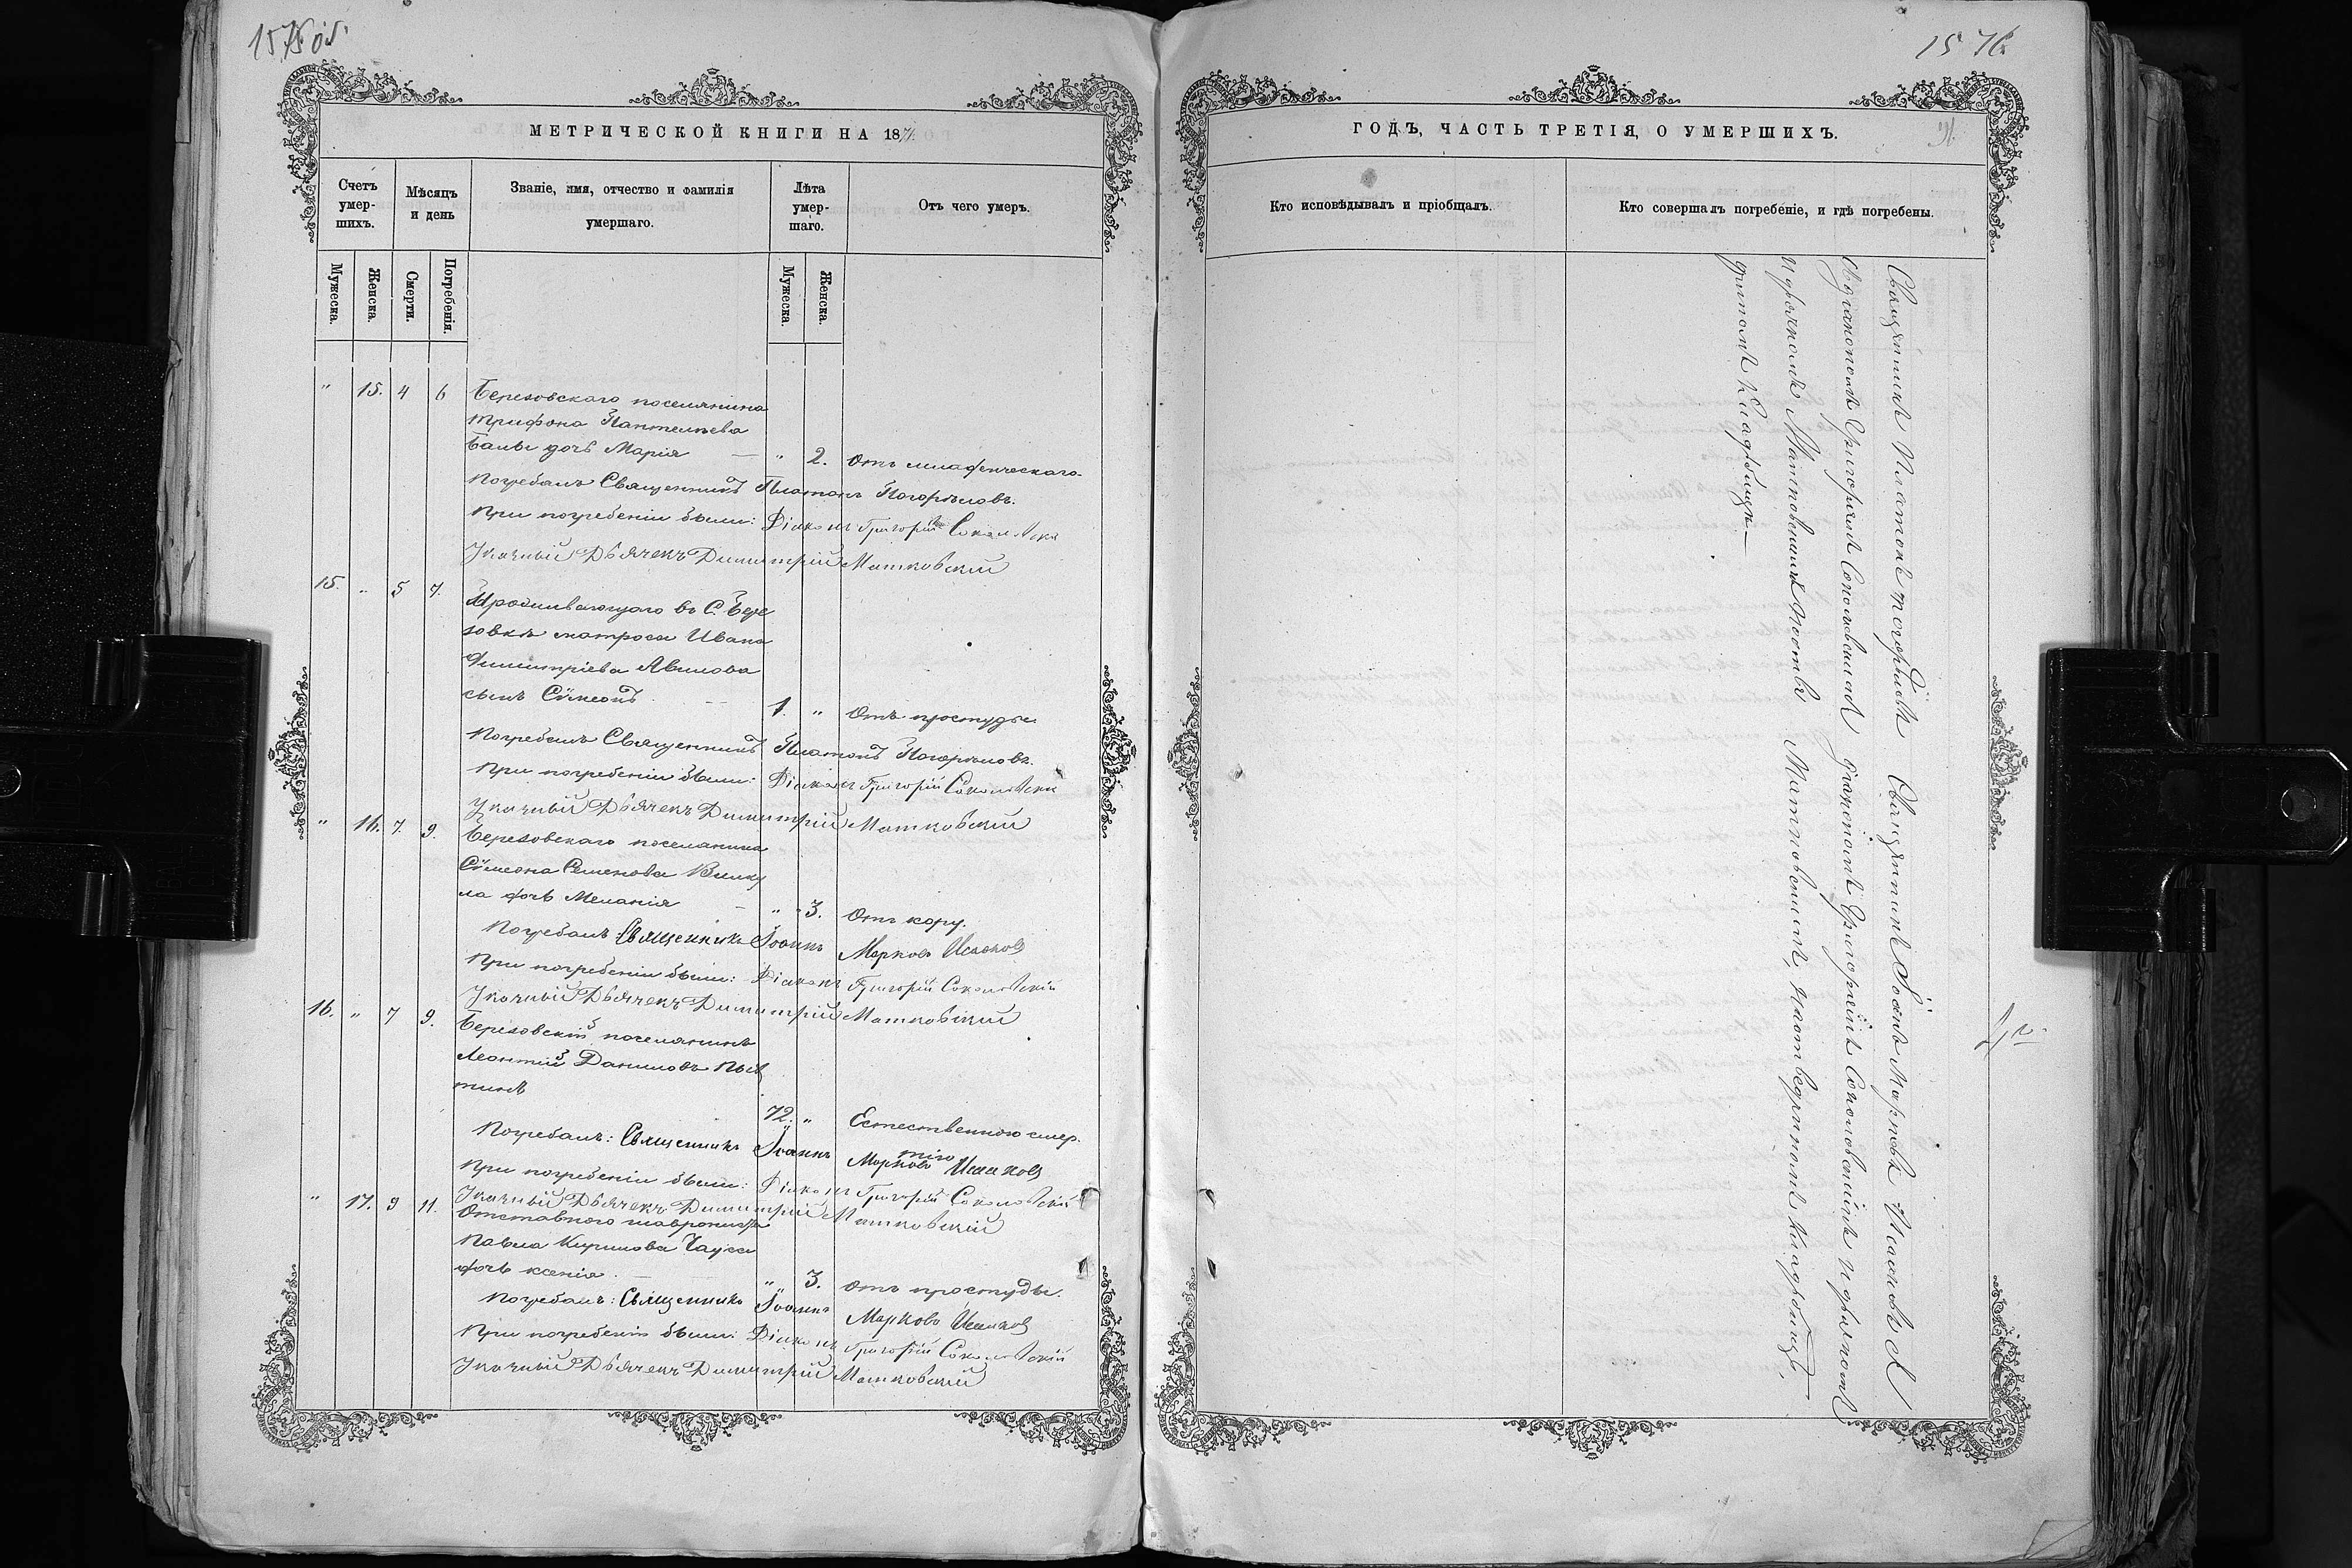 1575 об.
МЕТРИЧЕСКОЙ КНИГИ НА 1871.
Счетъ умер-шихъ.
Мѣсяцъ и день
Званіе, имя, отчество и фамилія умершаго.
Лѣта умер-шаго.
Отъ чего умеръ.
Мужеска.
Женска.
Смерти.
Погребенія.
Мужеска.
Женска.
" 15. 4 6 Березовскаго поселянина
Трифона Пантелѣева
Балы дочь Марія — " 2. Отъ младенческаго.
Погребалъ Священникъ Платонъ Погорѣловъ.
При погребеніи были: Діаконъ Григорій Соколовски
Указный Дьячекъ Димитрій Матковскій
15. " 5 7. Проживающаго въ С. Бере
зовкѣ матроса Ивана
Димитріева Авилова
сынъ Сѵмеонъ — 1. " Отъ простуды
Погребалъ Священникъ Платонъ Погорѣловъ.
При погребеніи были: Діаконъ Григорій Соколовски
Указный Дьячекъ Димитрій Матковскій
" 16. 7. 9. Березовскаго поселянина
Сѵмеона Семенова Вилку
ла дочь Меланія — " 3. Отъ кору.
Погребалъ: Священникъ Іоаннъ Марковъ Исаковъ
При погребеніи были: Діаконъ Григорій Соколовскій
Указный Дьячекъ Димитрій Матковскій
16. " 7 9. Березовскій поселянинъ
Леонтій Даниловъ
тинъ
72. " Естественною смер.
тію
Погребалъ: Священникъ Іоаннъ Марковъ Исаковъ
При погребеніи были: Діаконъ Григорій Соколовскій
Указный Дьячекъ Димитрій Матковскій
" 17. 9 11. Отставного
Павла Кирилова
дочь Ксенія. — " 3. отъ простуды.
Погребалъ: Священникъ Іоаннъ Марковъ Исаковъ
При погребеніи были: Діаконъ Григорій Соколовскій
Указный Дьячекъ Димитрій Матковскій
1576
ГОДЪ, ЧАСТЬ ТРЕТІЯ, О УМЕРШИХЪ.
Кто исповѣдывалъ и пріобщалъ.
Кто совершалъ погребеніе, и гдѣ погребены.
Священникъ Платонъ Погорѣловъ Священникъ Іоаннъ Марковъ Исаковъ съ
Діакономъ Григоріемъ Соколовскимъ Діаконъ Григорій Соколовскій и дьячкомъ
и дьячкомъ Матковскимъ Матковскимъ, на кладбищѣ, —
кладбищѣ —